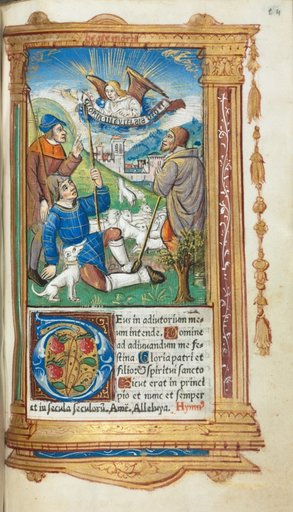 Deus in adiutorium me-
um intende. Domine
ad adiuuandum me fe-
stina Gloria patri et
filio: & spiritui sancto
Sicut erat in princi
pio et nunc et semper
et in secula seculorū. Amē. Alleluya. Hymn⁹